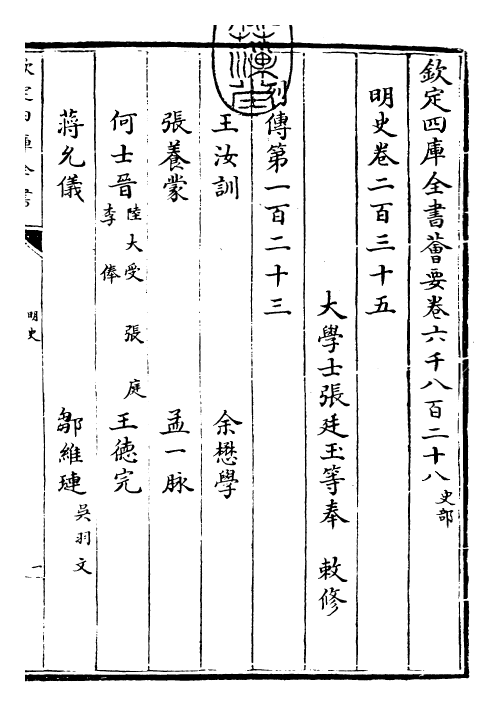 欽定四庫全書薈要卷六千八百二十八 史部
明史卷二百三十五
大學士張廷玉等奉 敕修
列傳第一百二十三
王汝訓 余懋學
張養蒙 孟一脉
何士晉 陸大受 張庭 李俸 王德完
蔣允儀 鄒維璉 吳羽文
欽定四庫全書
明史
一